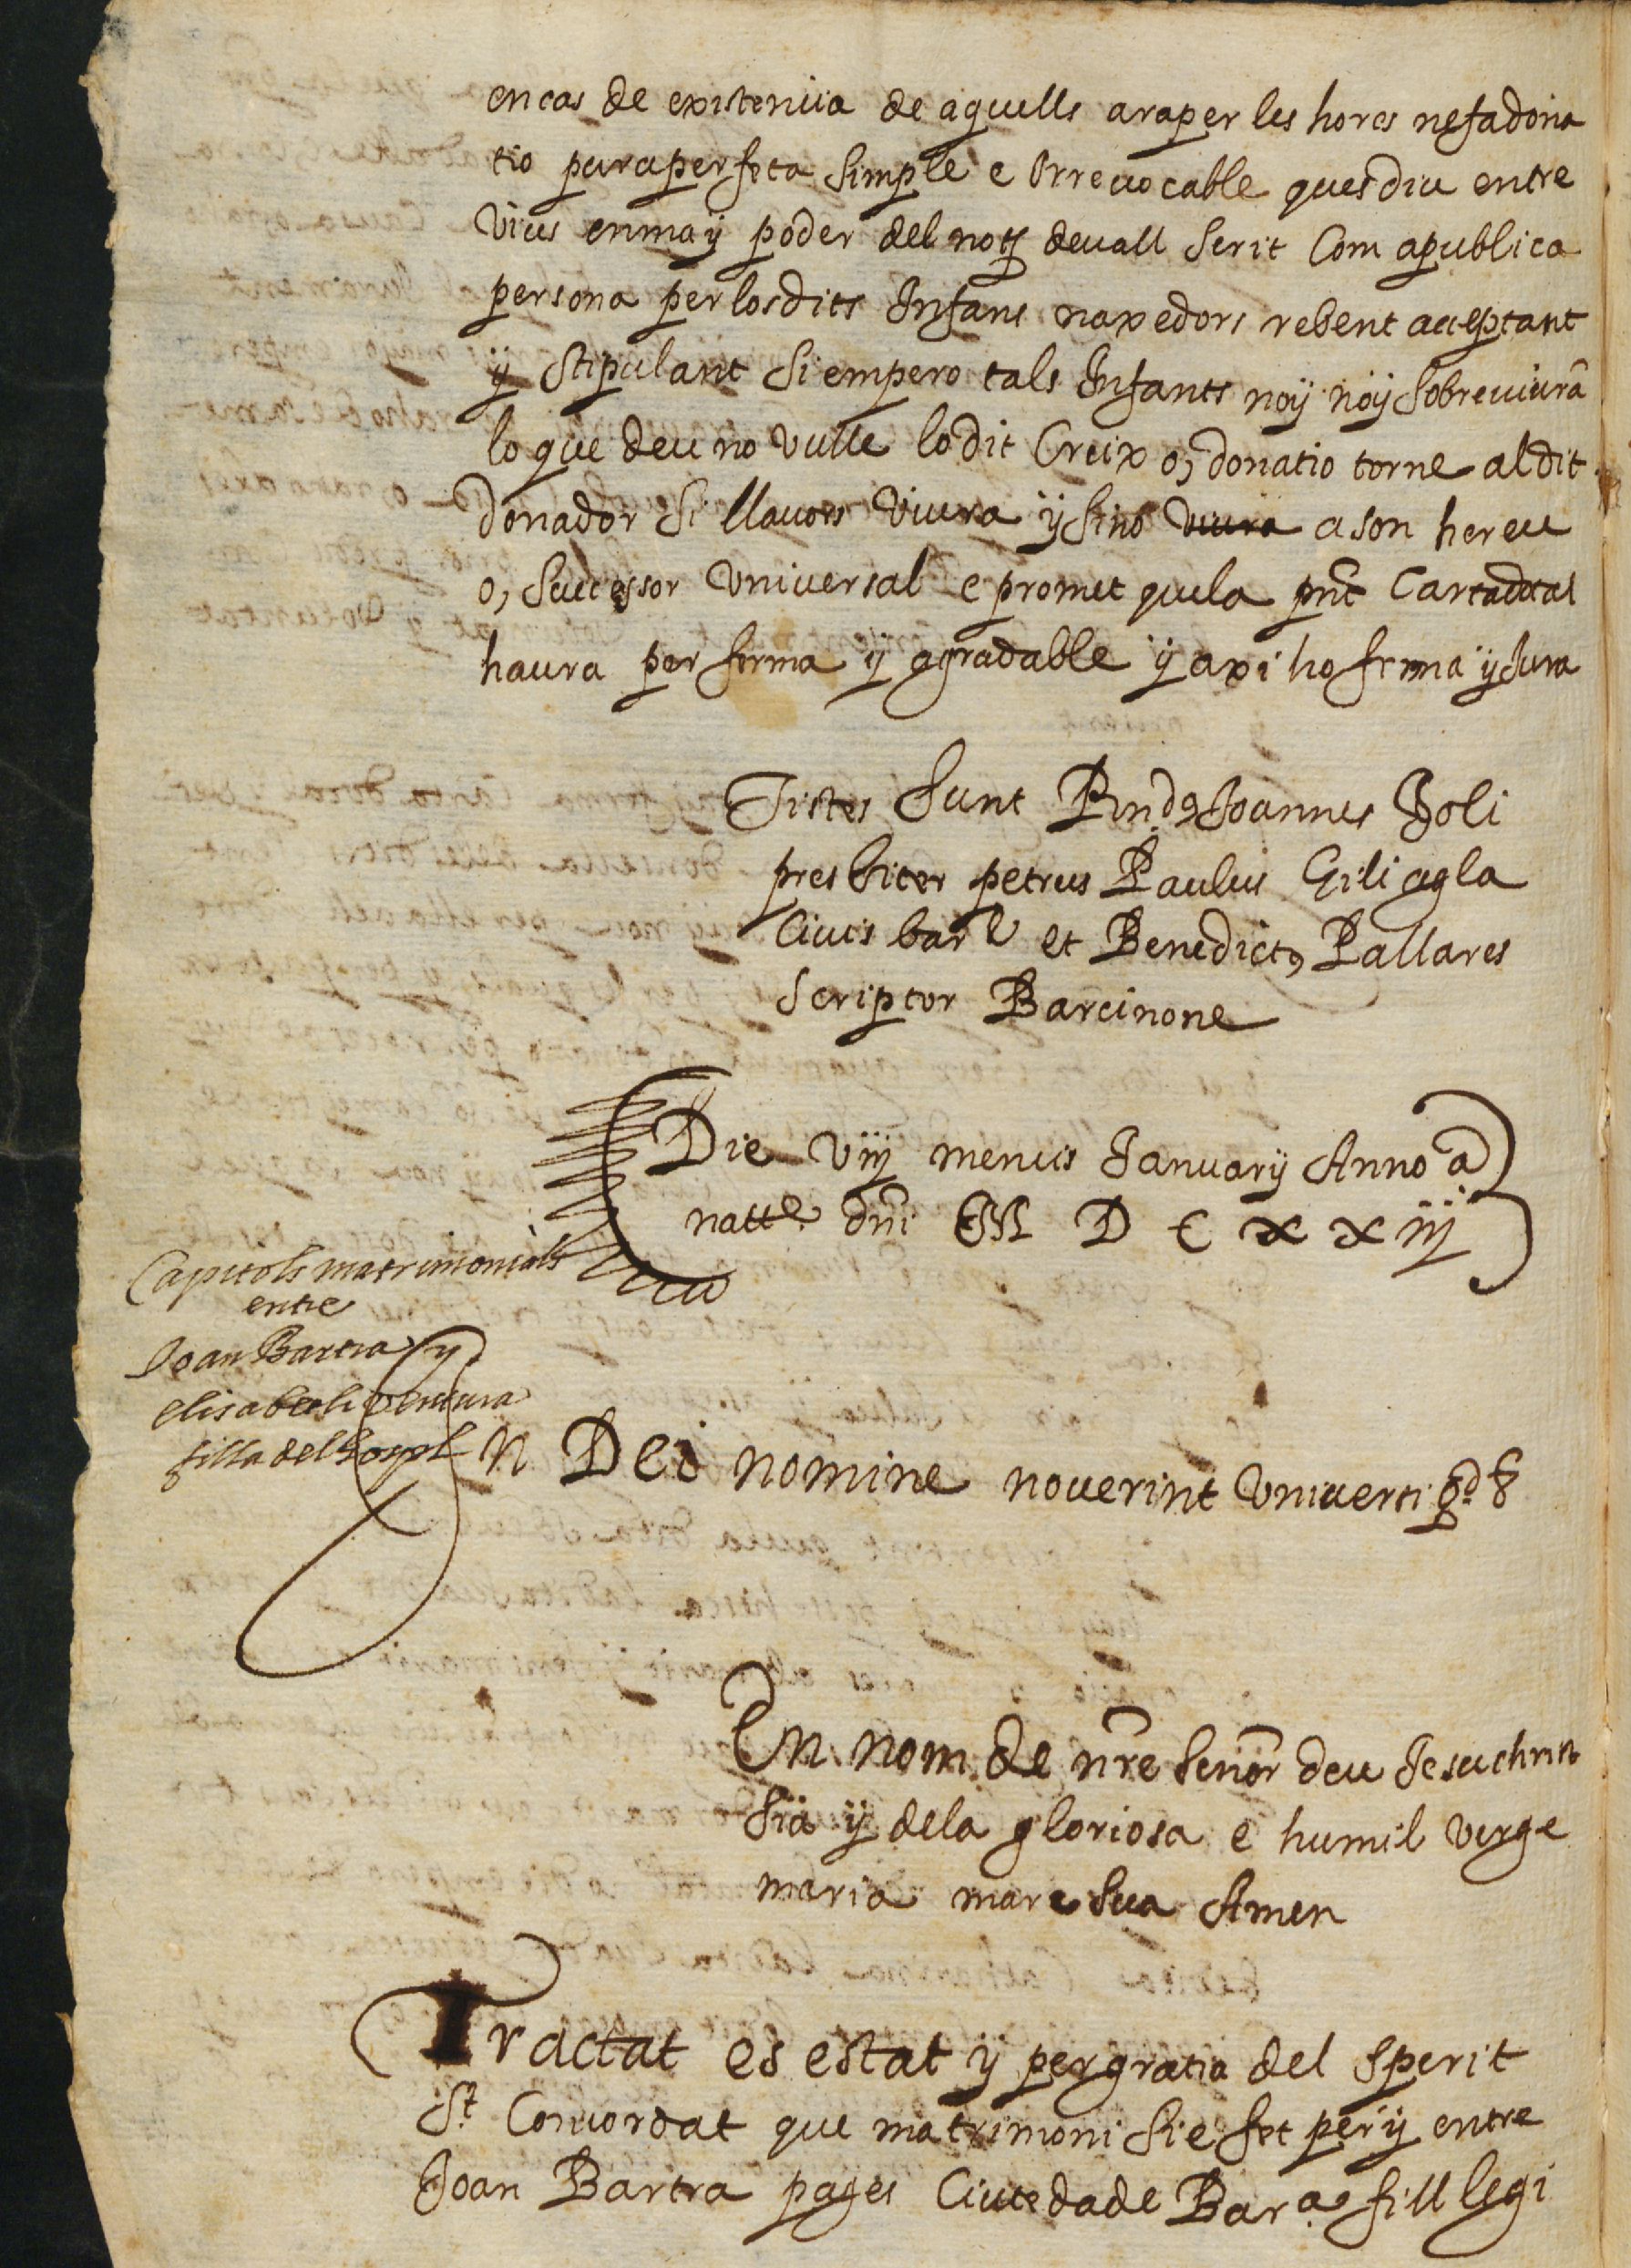 encas de existentia de aquells araper les hores nefadona
tio puraperfeta simple e Irreuocable quesdiu entre
Vius enmaÿ poder del notj deuall scrit Com apublica
persona perlosdits Infans naxedors rebent acceptant
ÿ stipulant si empero tals Infants noÿ noÿ sobreuiurā
lo que deu no vulle lodit Creix o, donatio torne aldit
donador si llauors Viura ÿ sino viura a son hereu
o, successor Vniuersal e promet quela pñt Cartadotal
haura per ferma ÿ agradable ÿ axi ho ferma ÿ Jura
Tistes sunt Rnd9 Joannes Boli
presbiter petrus Paulus Gili agla
Ciuis bar et Benedict9 Pallares
scriptor Barcinone
Die viij mensis Januarij Anno a
natte. dñi M D C x x iij
Capitols matrimonials
entre
Joan Bartra y
elisabeth Ventura
filla del
In Dei nomine nouerint Vniuersi qd
En nom de nr̃e senor deu Jesuchrist
sia ÿ dela gloriosa e humil verge
maria mare sua Amen
Tractat es estat ÿ pergratia del sperit
St. Concordat que matrimoni sie fet perÿ entre
Joan Bartra pages Ciutedade Bara. fill legi